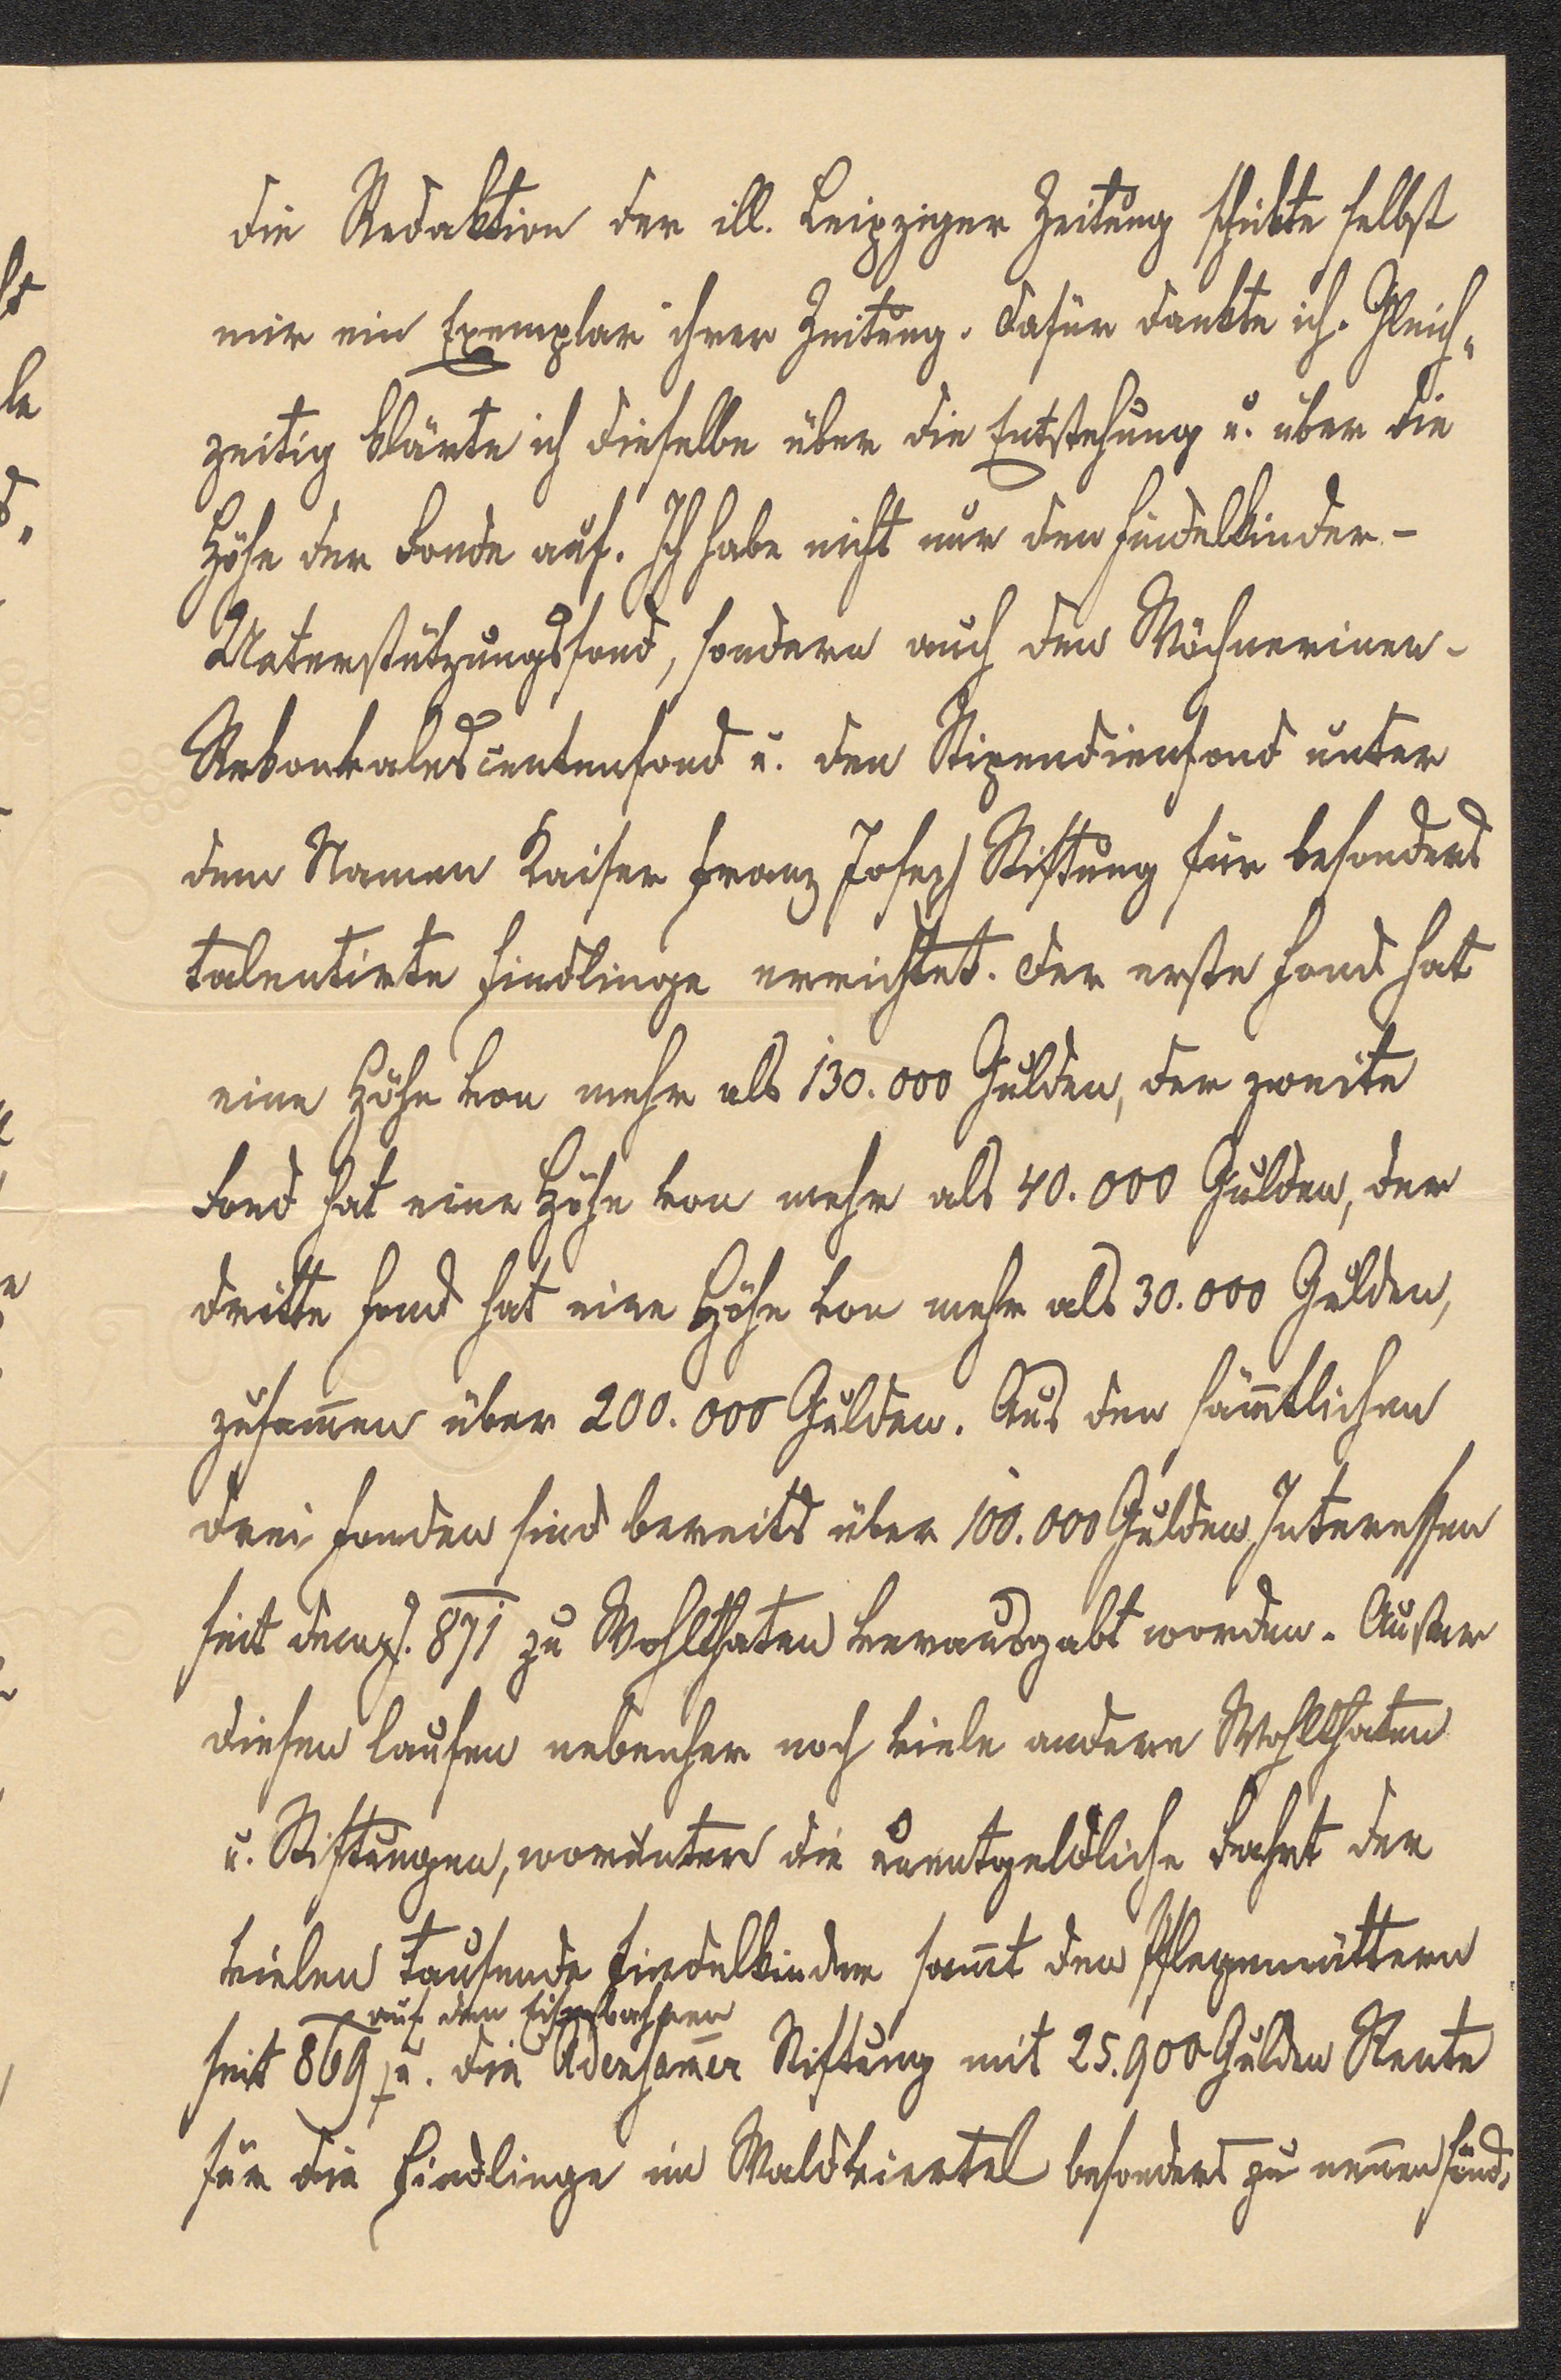 die Redaktion der ill. Leipziger Zeitung schikte selbst
mir ein Exemplar ihrer Zeitung. Dafür dankte ich. Gleich-
zeitig klärte ich dieselbe über die Entstehung u. über die
Höhe der Fonde auf. Ich habe nicht nur den Findelkinder-
Unterstützungsfond, sondern auch den Wöchnerinen-
Rekonvalescentenfond u. den Stipendienfond unter
dem Namen Kaiser Franz Joseph Stiftung für besonders
talentirte Findlinge errichtet. Der erste Fond hat
eine Höhe von mehr als 130.000 Gulden, der zweite
Fond hat eine Höhe von mehr als 40.000 Gulden, der
dritte Fond hat eine Höhe von mehr als 30.000 Gulden,
zusam̄en über 200.000 Gulden. Aus den säm̄tlichen
drei Fonden sind bereits über 100.000 Gulden Interessen
seit 871 zu Wohlthaten verausgabt worden. Außer
diesen laufen nebenher noch viele andere Wohlthaten
u. Stiftungen, worunter die unentgeldliche Fahrt der
vielen Tausende Findelkinder sam̄t den Pflegemüttern
auf den Eisenbahnen
seit 869, u. die Stiftung mit 25.900 Gulden Rente
für die Findlinge im Waldviertel besonders zu nen̄en sind.
ht
le